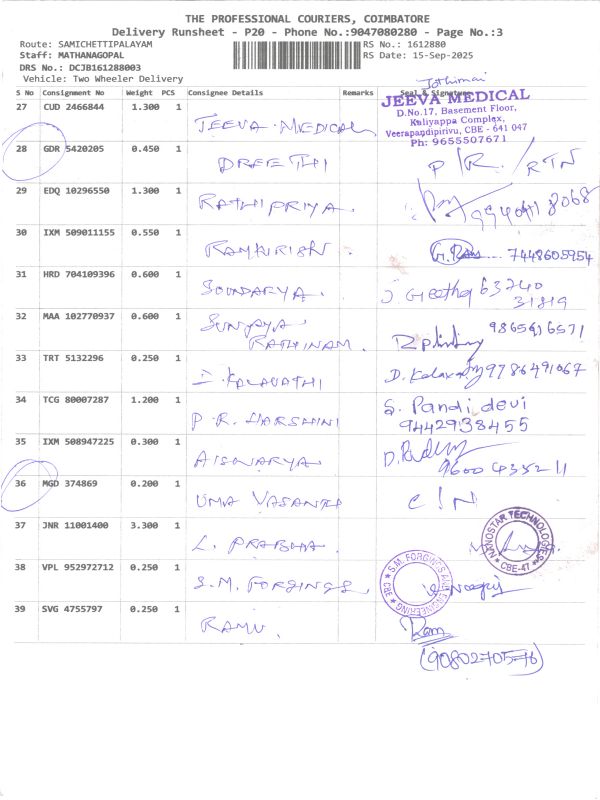 THE PROFESSIONAL COURIERS, COIMBATORE
Delivery Runsheet - P20 - Phone No.:9047080280 - Page No.:3
Route: SAMICHETTIPALAYAM RS No.: 1612880
Staff: MATHANAGOPAL RS Date: 15-Sep-2025
DRS No.: DCJB161288003
Vehicle: Two Wheeler Delivery
S No Consignment No Weight PCS Consignee Details Remarks Seal & Signature
Jothimai
27 CUD 2466844 1.300 1 JEEVA MEDICAL
JEEVA MEDICAL
D.No.17, Basement Floor,
Kaliyappa Complex,
Veerapandipirivu, CBE - 641 047
Ph: 9655507671
28 GDR 5420205 0.450 1 DREETHI P/R/RTN
29 EDQ 10296550 1.300 1 RATHIPRIYA.
30 IXM 509011155 0.550 1 RAMKRISH. G. Ram 7448605954
31 HRD 704109396 0.600 1 SOUNDARYA. J Geetha 63740
31819
32 MAA 102770937 0.600 1 SUNJAYA 9865416571
RATHINAM.
33 TRT 5132296 0.250 1 KALAVATHI D. Kalavathy 9786491067
34 TCG 80007287 1.200 1 P.R. HARSHINI S. Pandi devi
9442938455
35 IXM 508947225 0.300 1 AISWARYA
9600435211
36 MGD 374869 0.200 1 UMA VASANTHA C/N
37 JNR 11001400 3.300 1 L. PRABHA.
NANOSTAR TECHNOLOGIES
CBE-47
38 VPL 952972712 0.250 1 S.M. FORGINGS,
S.M. FORGINGS AND ENGINEERING
CBE
39 SVG 4755797 0.250 1 RAMU. Ram
(9080270576)